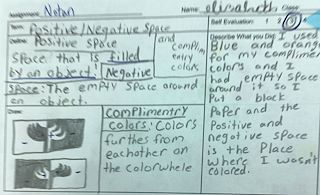 Assignment Notan
Name elisabeth Class
Term Positive/Negative Space
Self Evaluation: 1 2 3 4
Define: Positive space
Space that is filled
by an object. Negative
Space: The empty space around
an object.
and
complim
entry
colors
Describe What you Did: I used
Blue and orange
for my compliment
colors and I
had empty space
around it so I
Put a black
Paper and the
Positive and
negative space
is the Place
where I wasn't
colored.
Draw:
complimentry
colors: Colors
furthes from
eachother on
the colorwhole